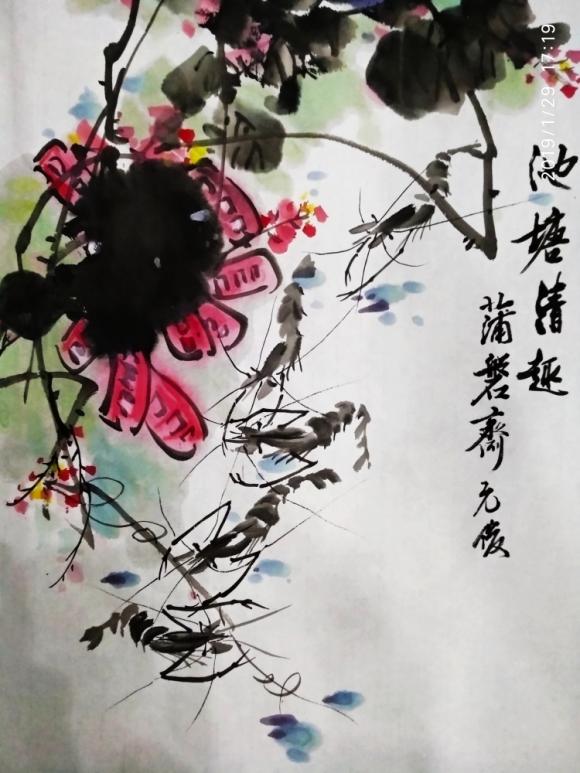 池塘清趣
北蒲磐齋元俊
2019/1/29 17:19